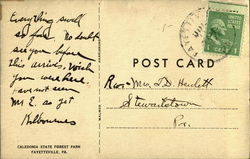 Everything swell
so far. No doubt
see you before
this arrives. Wish
you were here.
have not seen
Mr E. as yet
POST CARD
Rev. - Mrs J.D.
Stewartstown
Pa.
CALEDONIA STATE FOREST PARK
FAYETTEVILLE, PA.